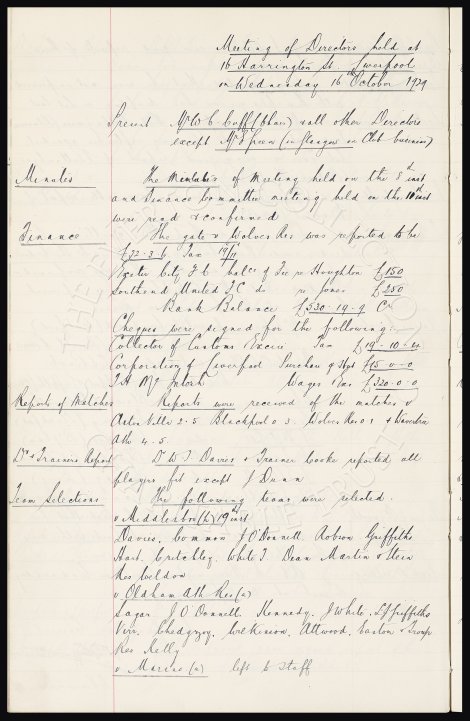 Meeting of Directors held at
16 Harrington St. Liverpool
on Wednesday 16th October 1929
Present Mr W C Cuff (Chair) & all other Directors
except Mr Green (in Glasgow on Club business)
Minutes The Minutes of Meeting held on the 8th inst
and Finance Committee meeting held on the 10th inst
were read & confirmed
Finance The gate v Wolves Res was reported to be
£22-3-6 Tax 19/11
Exeter City F.C. balce of Fee re Houghton £150
Southend United F.C. do re Jones £250
Bank Balance £530-19-9 Cr
Cheques were signed for the following:-
Collector of Customs & Excise Tax £19-10-4
Corporation of Liverpool £15-0-0
Wages £320-0-0
Reports of Matches Reports were received of the matches v
Aston Villa 2.5 Blackpool 0 3. Wolves Res 0 1 & Waverton
Ath 4.5
Drs & Trainers Report Dr W J Davies & Trainer Cooke reported all
players fit except J Dunn
Team Selections The following teams were selected
v Middlesbro (h) 19th inst
Davies, Common J O'Donnell Robson Griffiths
Hart. Critchley. White T Dean Martin & Stein
Res Weldon
v Oldham Ath Res (a)
Sagar J O'Donnell. Kennedy, J White.
Virr. Chedgzoy, Wilkinson, Attwood, Easton & Troup
Res Kelly
v Marine (a) left to staff